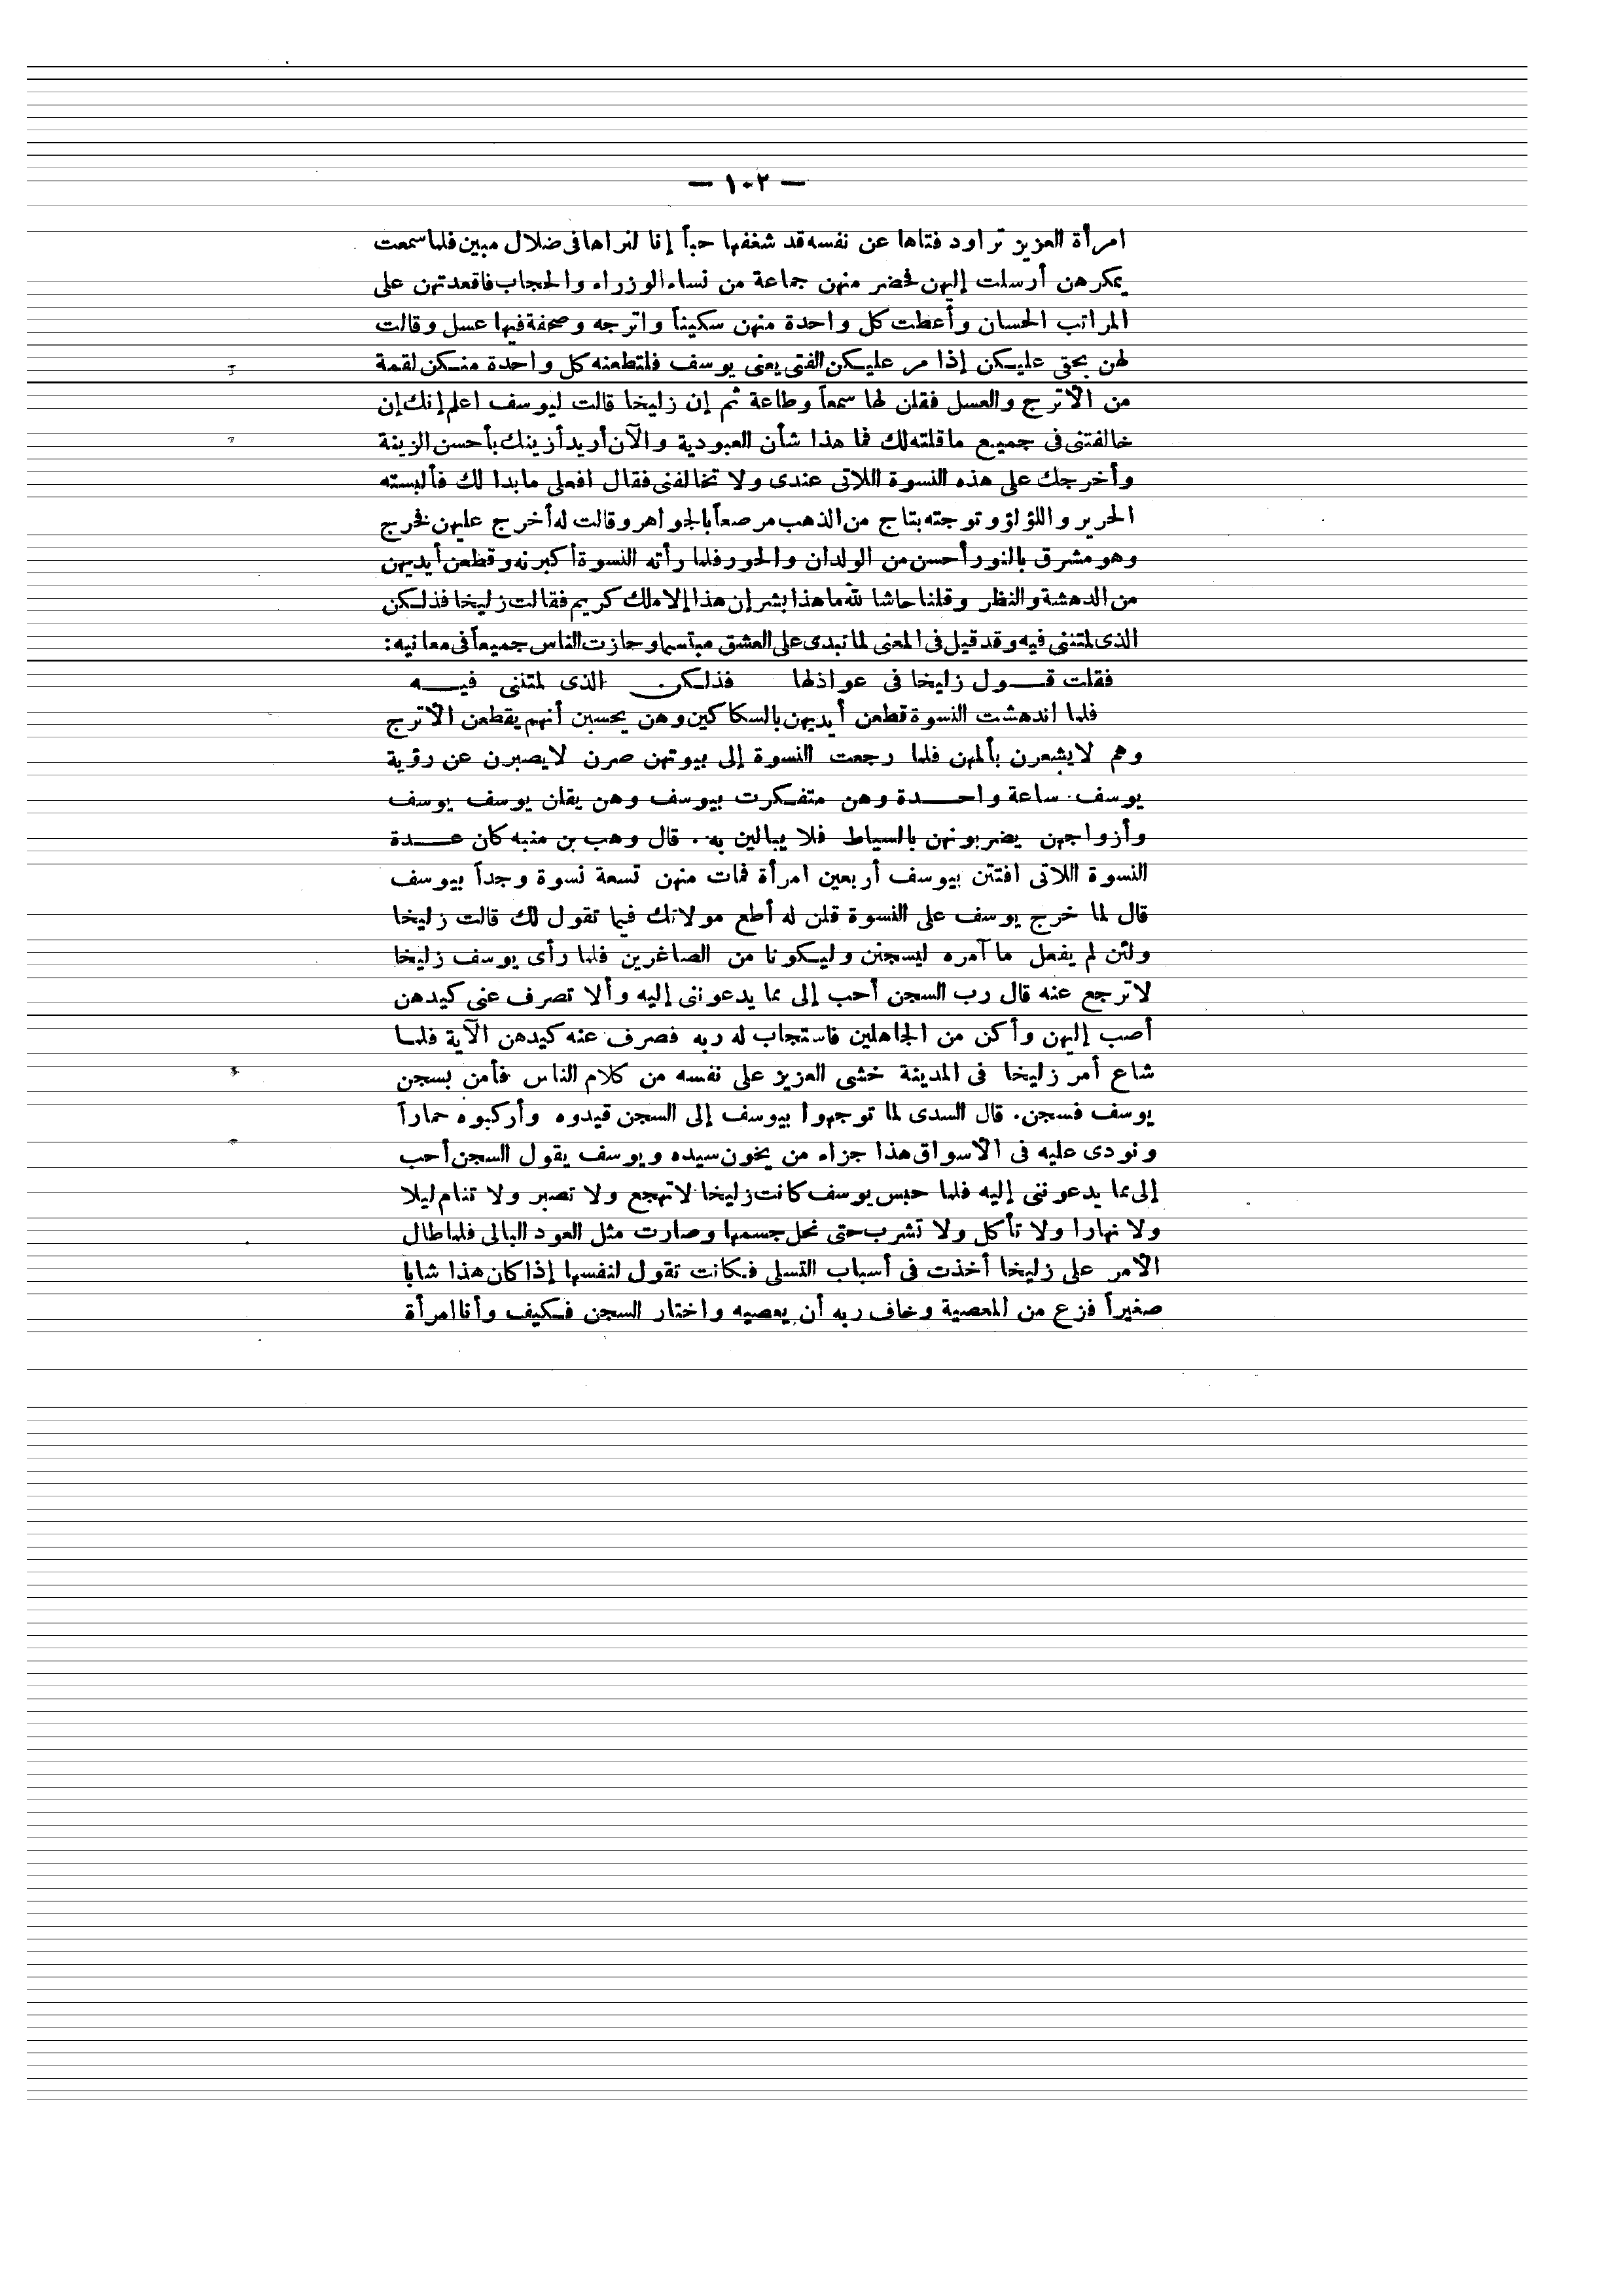 — ١٠٢ —
امرأة العزيز تراود فتاها عن نفسه قد شغفها حباً إنا لنراها فى ضلال مبين فلما سمعت
بمكرهن أرسلت إليهن فحضر منهن جماعة من نساء الوزراء والحجاب فاقعدتهن على
المراتب الحسان وأعطت كل واحدة منهن سكيناً واترجه وصحفة فيها عسل وقالت
لهن بحقى عليكن إذا مر عليكن الفتى يعنى يوسف فلتطعنه كل واحدة منكن لقمة
من الأترج والعسل فقلن لها سمعاً وطاعة ثم إن زليخا قالت ليوسف اعلم إنك إن
خالفتنى فى جميع ما قلته لك فما هذا شأن العبودية والآن أريد أزينك بأحسن الزينة
وأخرجك على هذه النسوة اللاتى عندى ولا تخالفنى فقال افعلى ما بدا لك فألبسته
الحرير واللؤلؤ وتوجته بتاج من الذهب مرصعاً بالجواهر وقالت له أخرج عليهن فخرج
وهو مشرق بالنور أحسن من الولدان والحور فلما رأته النسوة أكبرنه وقطعن أيديهن
من الدهشة والنظر وقلنا حاشا لله ما هذا بشر إن هذا إلا ملك كريم فقالت زليخا فذلكن
الذى لمتننى فيه وقد قيل فى المعنى لما تبدى على العشق مبتسما وحازت الناس جميعاً فى معانيه:
فقلت قول زليخا فى عواذلها فذلكن الذى لمتننى فيه
فلما اندهشت النسوة قطعن أيديهن بالسكاكين وهن يحسبن أنهم يقطعن الأترج
وهم لا يشعرن بألمهن فلما رجعت النسوة إلى بيوتهن صرن لا يصبرن عن رؤية
يوسف ساعة واحدة وهن متفكرت بيوسف وهن يقلن يوسف يوسف
وأزواجهن يضربونهن بالسياط فلا يبالين به. قال وهب بن منبه كان عدة
النسوة اللاتى افتتن بيوسف أربعين امرأة فمات منهن تسعة نسوة وجداً بيوسف
قال لما خرج يوسف على النسوة قلن له أطع مولاتك فيما تقول لك قالت زليخا
ولئن لم يفعل ما آمره ليسجنن وليكونا من الصاغرين فلما رأى يوسف زليخا
لا ترجع عنه قال رب السجن أحب إلى مما يدعوننى إليه وألا تصرف عنى كيدهن
أصب إليهن وأكن من الجاهلين فاستجاب له ربه فصرف عنه كيدهن الآية فلما
شاع أمر زليخا فى المدينة خشى العزيز على نفسه من كلام الناس فأمن بسجن
يوسف فسجن. قال السدى لما توجهوا بيوسف إلى السجن قيدوه وأركبوه حماراً
ونودى عليه فى الأسواق هذا جزاء من يخون سيده ويوسف يقول السجن أحب
إلى مما يدعوننى إليه فلما حبس يوسف كانت زليخا لا تهجع ولا تصبر ولا تنام ليلا
ولا نهارا ولا تأكل ولا تشرب حتى نحل جسمها وصارت مثل العود البالى فلما طال
الأمر على زليخا أخذت فى أسباب التسلى فكانت تقول لنفسها إذا كان هذا شابا
صغيراً فزع من المعصية وخاف ربه أن يعصيه واختار السجن فكيف وأنا امرأة